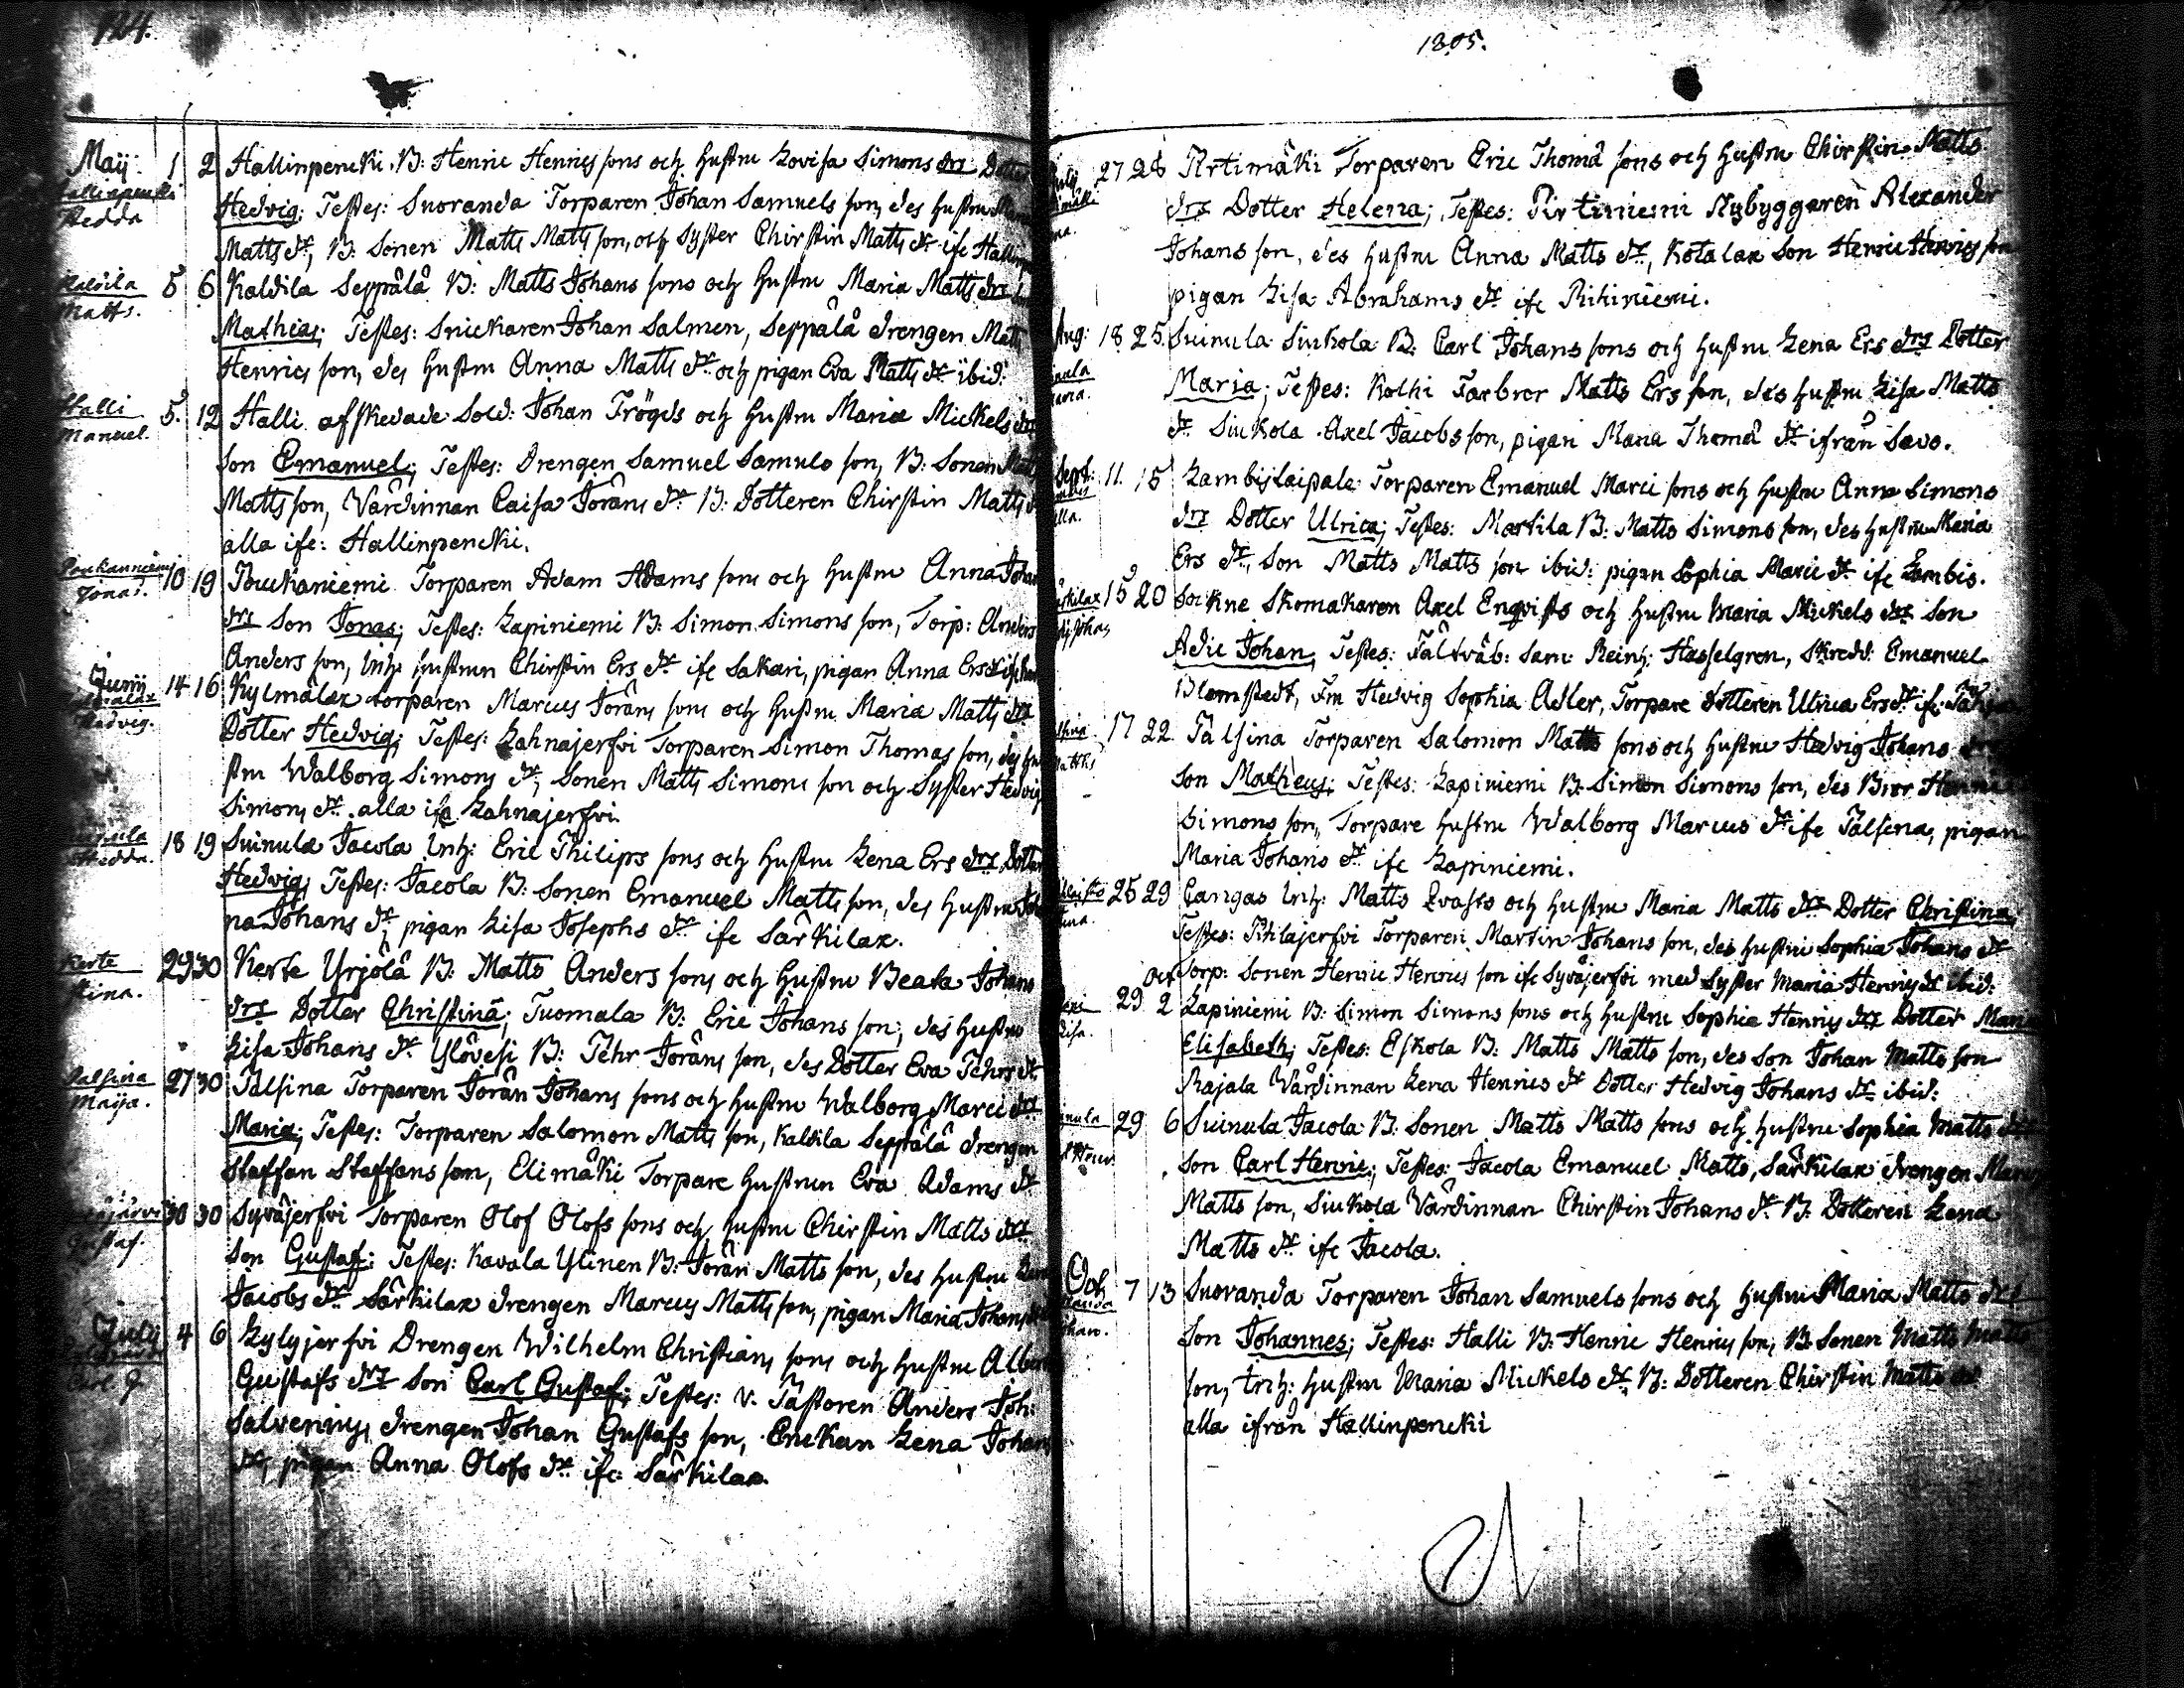 124.
Maij: 1 2 Hallinpencki. B: Henric Henrics sons och hustru Lovisa Simons drs Dotter
Hallinpenki
Hedda
Hedvig; Testes: Suoranda Torparen Johan Samuels son, des hustru
Matts dr, B: Sonen Matts Matts son, och Syster Chirstin Matts dr ifr
Kaldila 5 6 Kaldila Seppälä B: Matts Johans sons och hustru Maria Matts drs
Matts.
Mathias; Testes: Snickaren Johan Salmen, Seppälä drengen Matts
Henrics son, des hustru Anna Matts dr och pigan Eva Matts dr ibid:
Halli 5. 12 Halli afskedade Sold: Johan Frögds och hustru Maria Mickels drs
Manuel.
son Emanuel; Testes: drengen Samuel Samuls son, B: Sonen Matts
Matts son, Värdinnan Caisa Jöräns dr B: Dotteren Chirstin Matts
alla ifr: Hallinpencki.
Poukanniemi 10 19 Poukaniemi Torparen Adam Adams sons och hustru Anna Johans
Jonas.
drs Son Jonas; Testes: Lapiniemi B: Simon Simons son, Torp: Anders
Anders son, Inh: hustrun Chirstin Ers dr ifr Sakari, pigan Anna Ers dr
Junij 14 16 Kylmälax torparen Marcus Jöräns sons och hustru Maria Matts drs
Hedvig.
Dotter Hedvig; Testes: Lahnajerfvi Torparen Simon Thomas son, des hu
stru Walborg Simons dr, Sonen Matts Simons son och Syster Hedvig
Simons dr alla ifr Lahnajerfvi.
Suinula 18 19 Suinula Jacola Inh: Eric Philips sons och hustru Lena Ers drs Dotter
Hedda.
Hedvig; Testes: Jacola B: Sonen Emanuel Matts son, des hustru
na Johans dr pigan Lisa Josephs dr ifr Särkilax.
Kerte 29 30 Kerte Yrjölä B: Matts Anders sons och hustru Beata Johans
stina.
drs Dotter Christina; Tuomala B: Eric Johans son, des hustru
Lisa Johans dr Ylövesi B: Pehr Jöräns son, des Dotter Eva Pehrs dr.
Palsina 27 30 Palsina Torparen Jörän Johans sons och hustru Walborg Marci drs
Maija.
Maria; Testes: Torparen Salomon Matts son, Kaldila Seppälä drengen
Staffan Staffans son, Elimäki Torpare hustrun Eva Adams dr
30 30 Syväjerfvi Torparen Olof Olofs sons och hustru Chirstin Matts drs
Gustaf.
Son Gustaf; Testes: Kavala Ylinen B: Jörän Matts son, des hustru
Jacobs dr Särkilax drengen Marcus Matts son, pigan Maria Johans
July 4 6 Lylyjerfvi Drengen Wilhelm Christians sons och hustru
Carl G
Gustafs drs Son Carl Gustaf; Testes: V. Pastoren Anders Joh:
Salvenius, drengen Johan Gustafs son, Enckan Lena Johans
dr, pigan Anna Olofs dr ifr Särkilax.
1805.
July 27 28 Pirtimäki Torparen Eric Thomä sons och hustru Chirstin Matts
drs Dotter Helena; Testes: Pirtiniemi Nybyggaren Alexander
Johans son, des hustru Anna Matts dr, Kotalax Son Henric Henrics son
pigan Lisa Abrahams dr ifr Rihiniemi.
Aug: 18 25 Suinula Siukola B: Carl Johans sons och hustru Lena Ers drs Dotter
Maria; Testes: Kolhi Farbror Matts Ers son, des hustru Lisa Matts
dr Siukola Axel Jacobs son, pigan Maria Thomä dr ifrån Savo.
Sept: 11. 15 Lambislaipale Torparen Emanuel Marci sons och hustru Anna Simons
drs Dotter Ulrica; Testes: Martila B: Matts Simons son, des hustru Maria
Ers dr, Son Matts Matts son ibid: pigan Sophia Marci dr ifr Lambis.
15 20 Sockne Skomakaren Axel Enqvists och hustru Maria Mickels drs Son
Adic Johan, Testes: Fältväb: Sam: Reinh: Hasselgren, Skredd: Emanuel
Blomstedt, Fru Hedvig Sophia Adler, Torpare dotteren Ulrica Ers dr ifr
17 22 Palsina Torparen Salomon Matts sons och hustru Hedvig Johans drs
Son Matheus; Testes: Lapiniemi B: Simon Simons son, des Bror Henric
Simons son, Torpare hustru Walborg Marcus dr ifr Palsina, pigan
Maria Johans dr ifr Lapiniemi.
25 29 Cangas Inh: Matts Qvasts och hustru Maria Matts drs Dotter Christina;
Testes: Pihlajerfvi Torparen Martin Johans son, des hustru Sophia Johans dr
Oct Torp: Sonen Henric Henrics son ifr Syväjerfvi med Syster Maria Henrics dr ibid:
29 2 Lapiniemi B: Simon Simons sons och hustru Sophia Henrics drs Dotter
Elisabeth; Testes: Eskola B: Matts Matts son, des Son Johan Matts son
Rajala Värdinnan Lena Henrics dr Dotter Hedvig Johans dr ibid:
29 6 Suinula Jacola B: Sonen Matts Matts sons och hustru Sophia Matts
Son Carl Henric; Testes: Jacola Emanuel Matts, Särkilax drengen
Matts son, Siukola Värdinnan Chirstin Johans dr B: Dotteren Lena
Matts dr ifr Jacola.
Oct 7 13 Suoranda Torparen Johan Samuels sons och hustru Maria Matts drs
Son Johannes; Testes: Halli B: Henric Henrics son, B: Sonen Matts Matts
son, Inh: hustru Maria Mickels dr, B: Dotteren Chirstin Matts dr
alla ifrån Hallinpencki